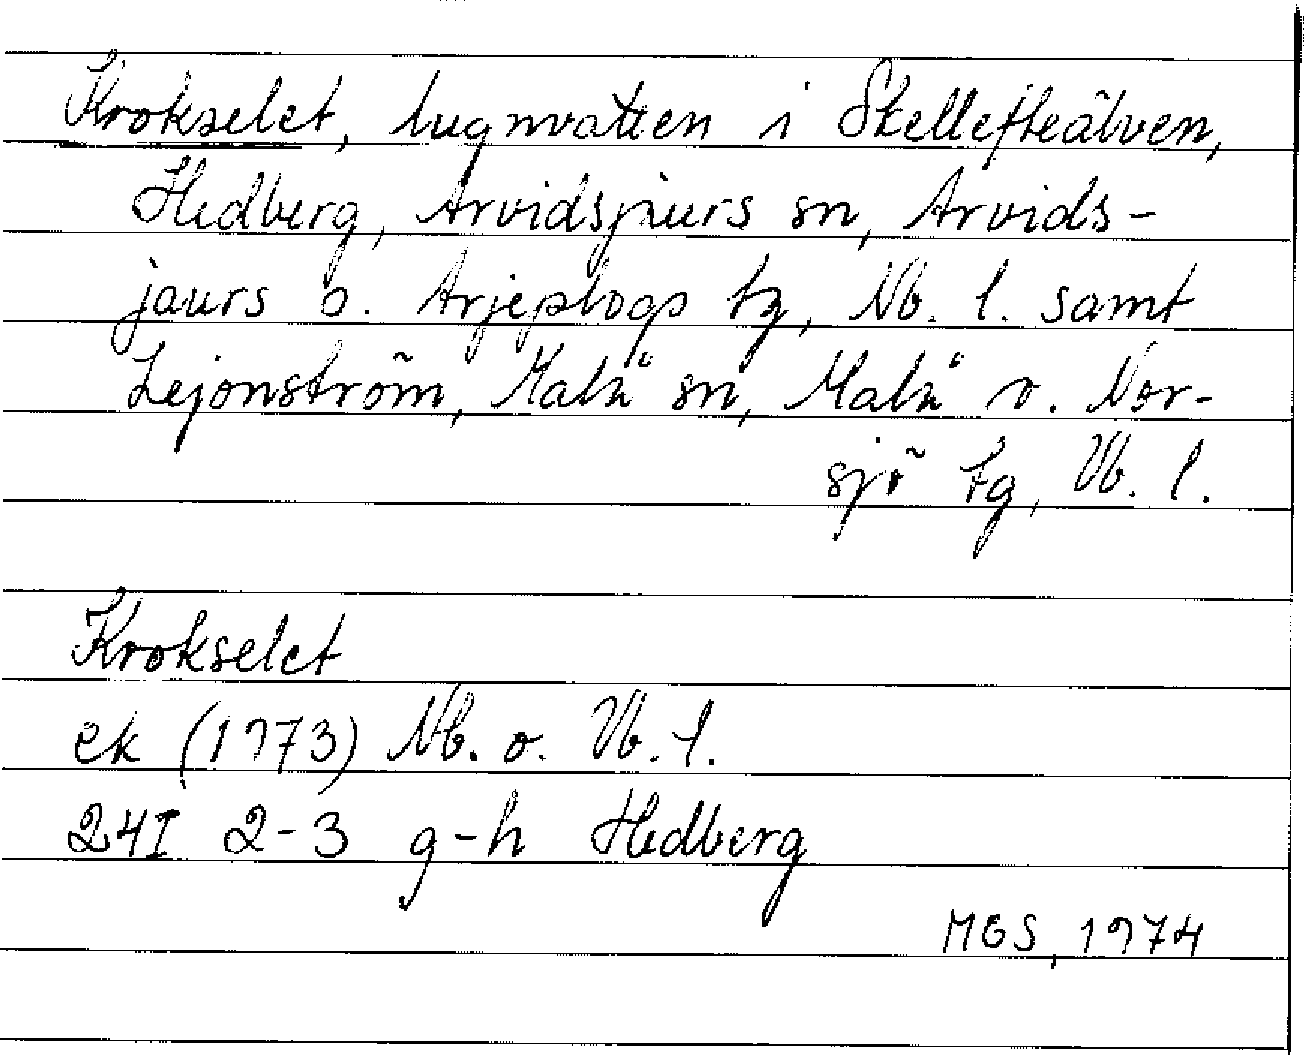 Krokselet, lugnvatten i Skellefteälven,
Hedberg, Arvidsjaurs sn, Arvids-
jaurs o. Arjeplogs tg, Nb. l. samt
Lejonström, Malå sn, Malå o. Nor-
sjö tg, Vb. l.
Krokselet
ek (1973) Nb. o. Vb. l.
24I 2-3 g-h Hedberg
MGS, 1974